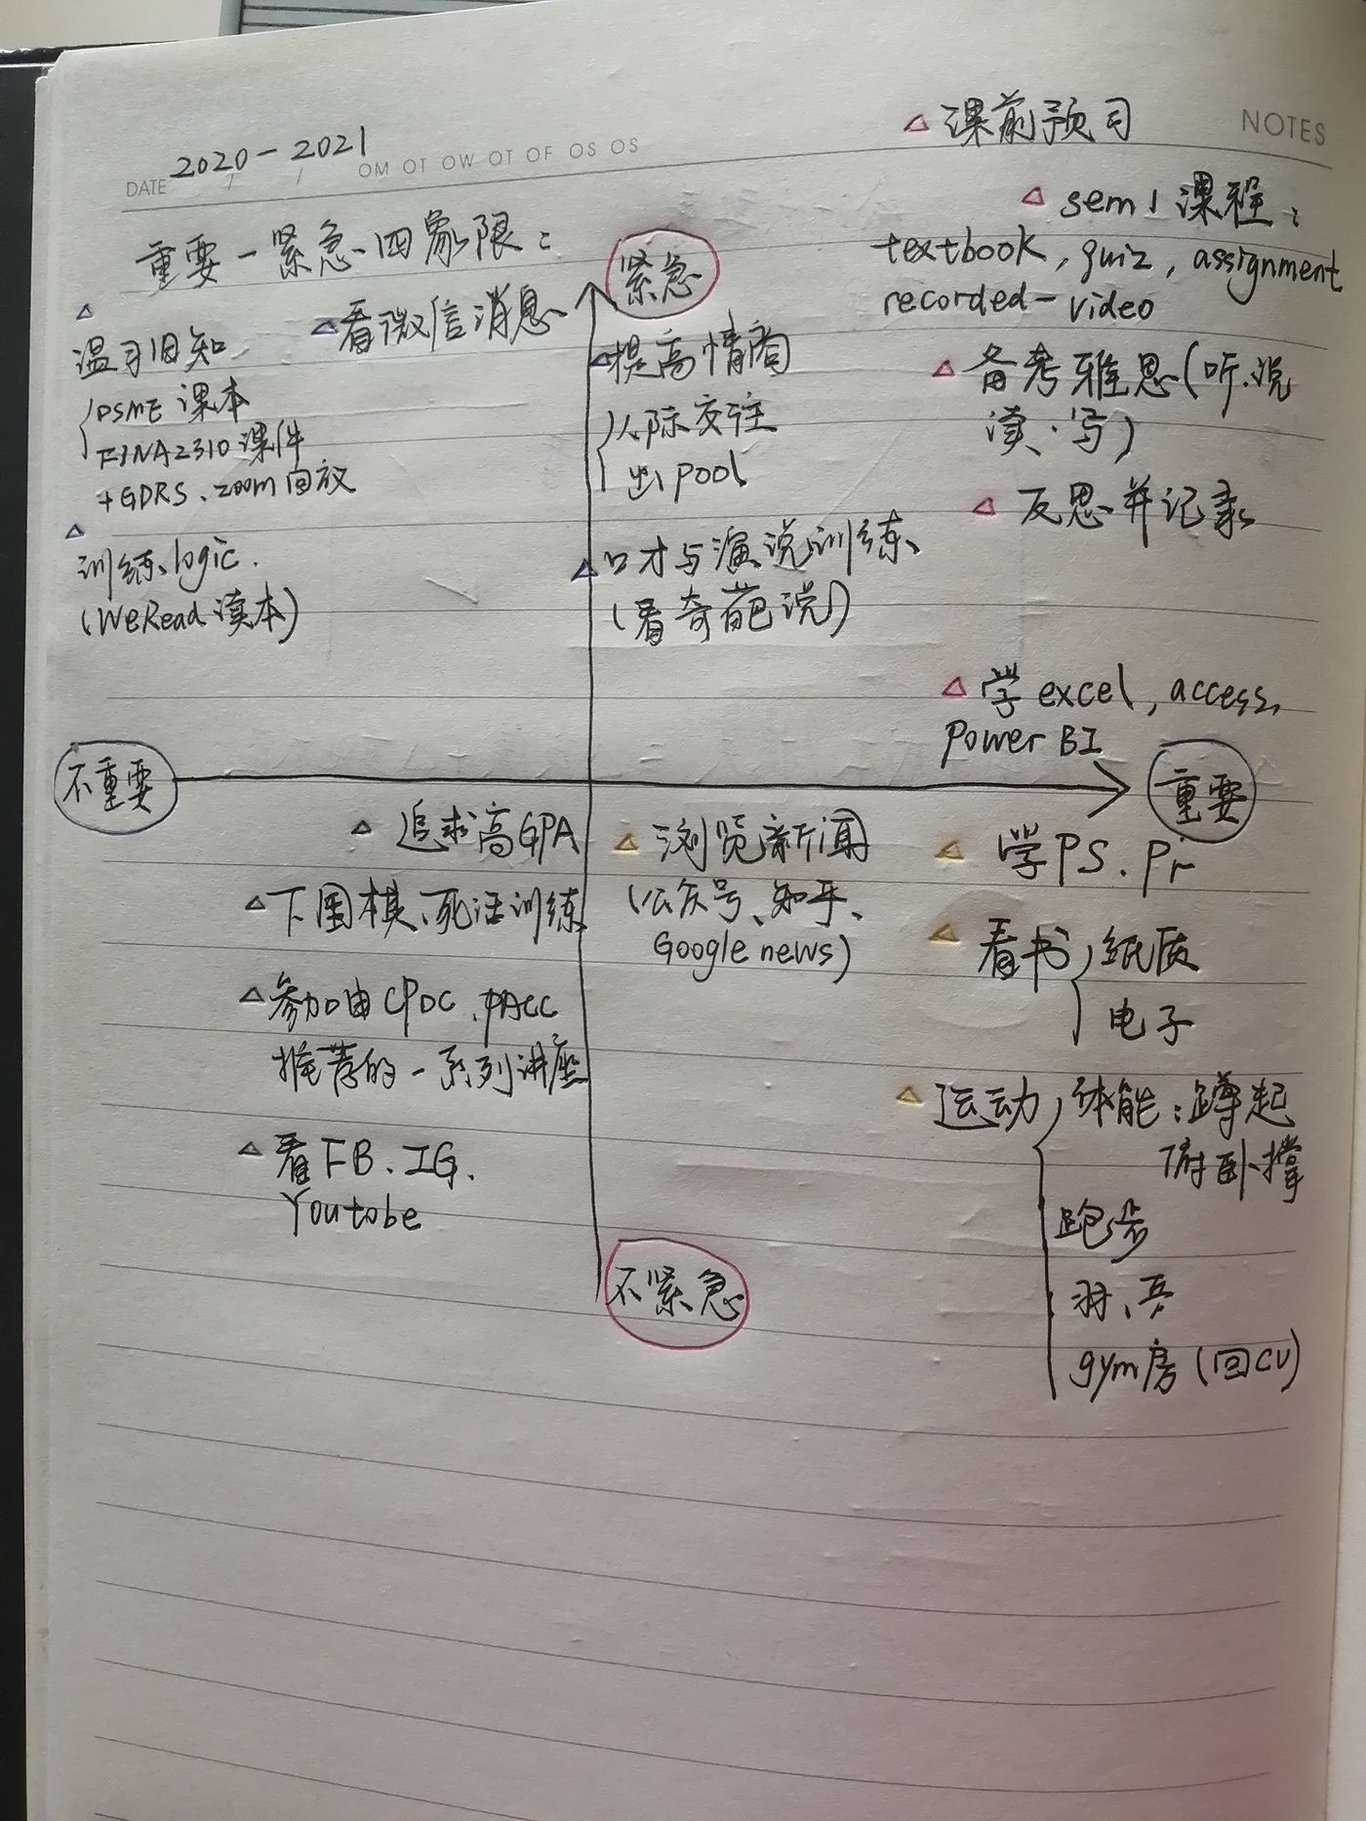 NOTES
DATE 2020-2021
OM OT OW OT OF OS OS
重要-紧急四象限：
紧急
△课前预习
△sem 1 课程：
textbook, quiz, assignment
recorded-video
△备考雅思(听.说
读.写)
△反思并记录
△学excel, access,
Power BI
△看微信消息
△提高情商
人际交往
出pool
△口才与演说训练
(看奇葩说)
△
温习旧知
PSME 课本
FINA2310 课件
+GDRS、zoom回放
△
训练logic.
(WeRead 读本)
不重要
重要
△追求高GPA
△下围棋、死活训练
△参加由CPDC、
推荐的一系列讲座
△看FB、IG、
Youtobe
△浏览新闻
(公众号、知乎、
Google news)
△学PS.Pr
△看书
纸质
电子
△运动
体能：蹲起
俯卧撑
跑步
羽、乒
gym房(回CU)
不紧急